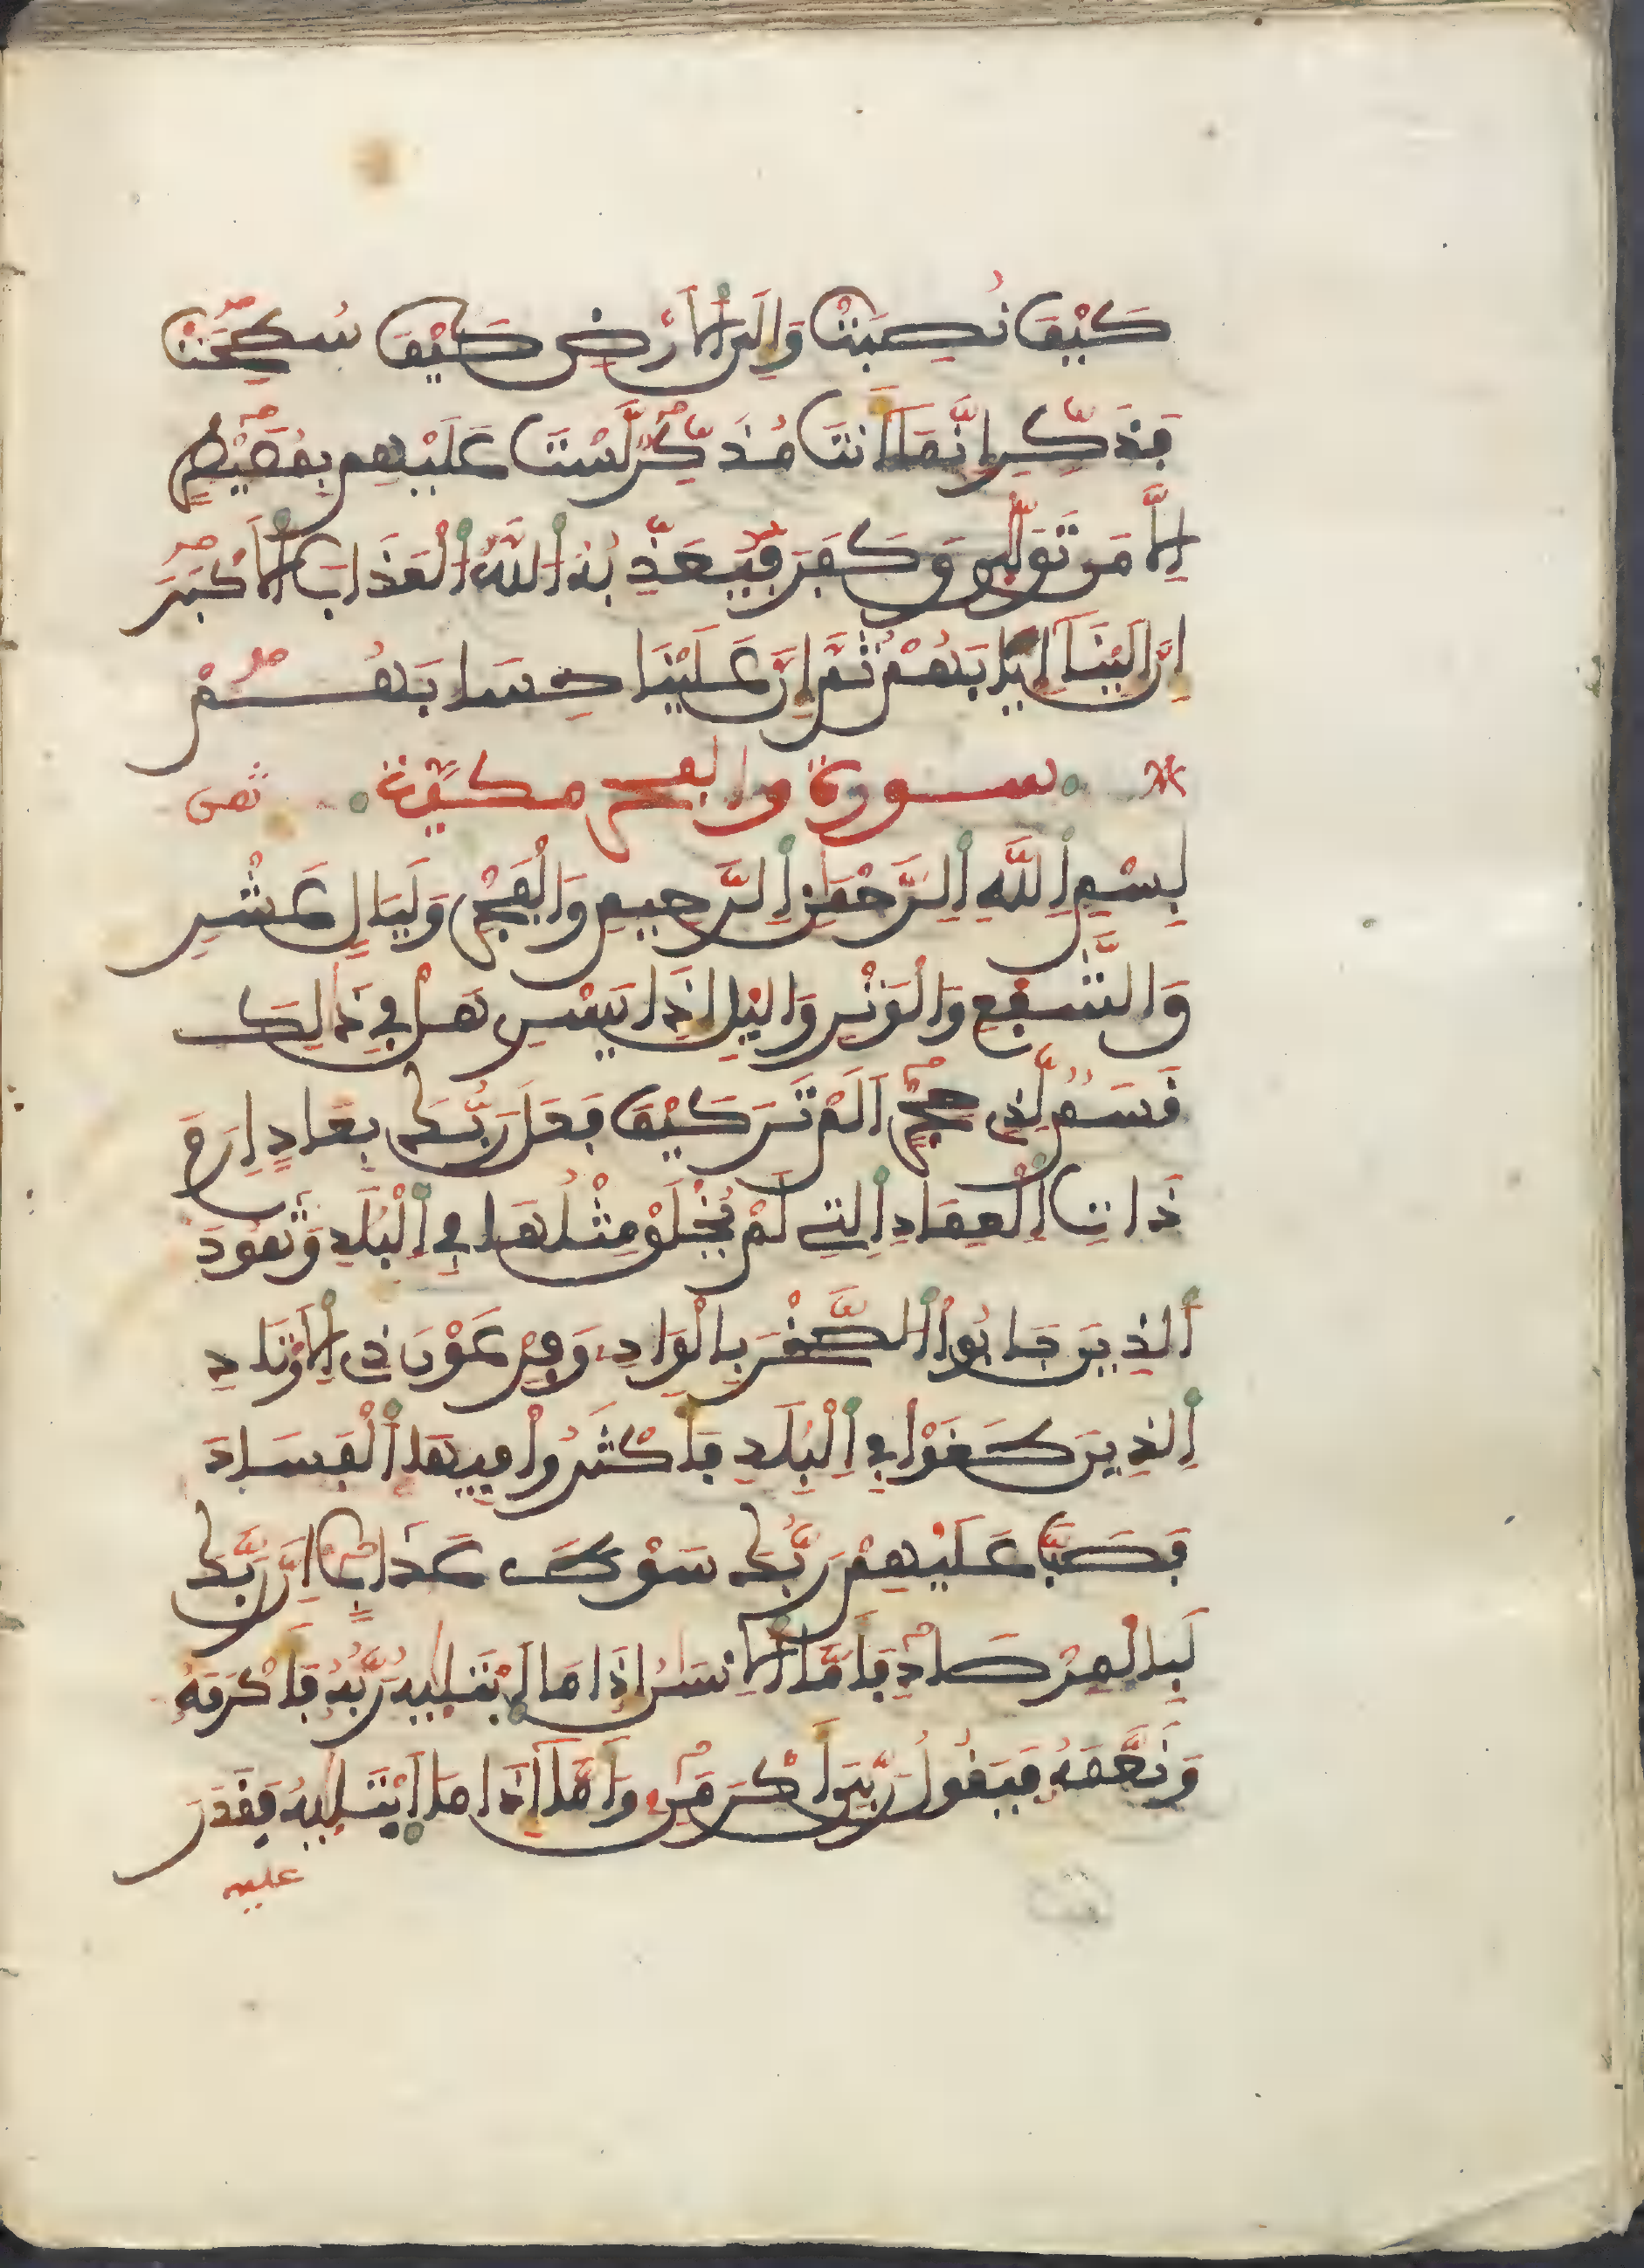 كَيْفَ نُصِبَتْ وَإِلَى اَلْأَرْضِ كَيْفَ سُطِحَتْ
فَذَكِّرِ اِنَّمَا أَنتَ مُذَكِّرٌ لَّسْتَ عَلَيْهِم بِمُصَيْطِرٍ
إِلَّا مَن تَوَلَّىٰ وَكَفَرَ فَيُعَذِّبُهُ اُللَّهُ اُلْعَذَابَ اَلْأَكْبَرَ
إِنَّ إِلَيْنَا إِيَابَهُمْ ثُمَّ إِنَّ عَلَيْنَا حِسَابَهُمْ
سورة والفجر مكية ثمن
بِسْمِ اِللَّهِ اِلرَّحْمَٰنِ اِلرَّحِيمِ وَالْفَجْرِ وَلَيَالٍ عَشْرٍ
وَالشَّفْعِ وَالْوَتْرِ وَاليْلِ إِذَا يَسْرِ هَلْ فِي ذَٰلِكَ
قَسَمٌ لِّذِي حِجْرٍ أَلَمْ تَرَ كَيْفَ فَعَلَ رَبُّكَ بِعَادٍ إِرَمَ
ذَاتِ اِلْعِمَادِ اِلتِي لَمْ يُخْلَقْ مِثْلُهَا فِي اِلْبِلَٰدِ وَثَمُودَ
اَلذِينَ جَابُوا اُلصَّخْرَ بِالْوَادِ وَفِرْعَوْنَ ذِي اِلْأَوْتَادِ
اِلذِينَ طَغَوْا فِي اِلْبِلَٰدِ فَأَكْثَرُوا فِيهَا اَلْفَسَادَ
فَصَبَّ عَلَيْهِمْ رَبُّكَ سَوْطَ عَذَابٍ إِنَّ رَبَّكَ
لَبِالْمِرْصَادِ فَأَمَّا اَلْإِنسَٰنُ إِذَا مَا اَبْتَلَيٰهُ رَبُّهُ فَأَكْرَمَهُ
وَنَعَّمَهُ فَيَقُولُ رَبِّيَ أَكْرَمَنِ وَأَمَّا إِذَا مَا اَبْتَلَيٰهُ فَقَدَرَ
عليه